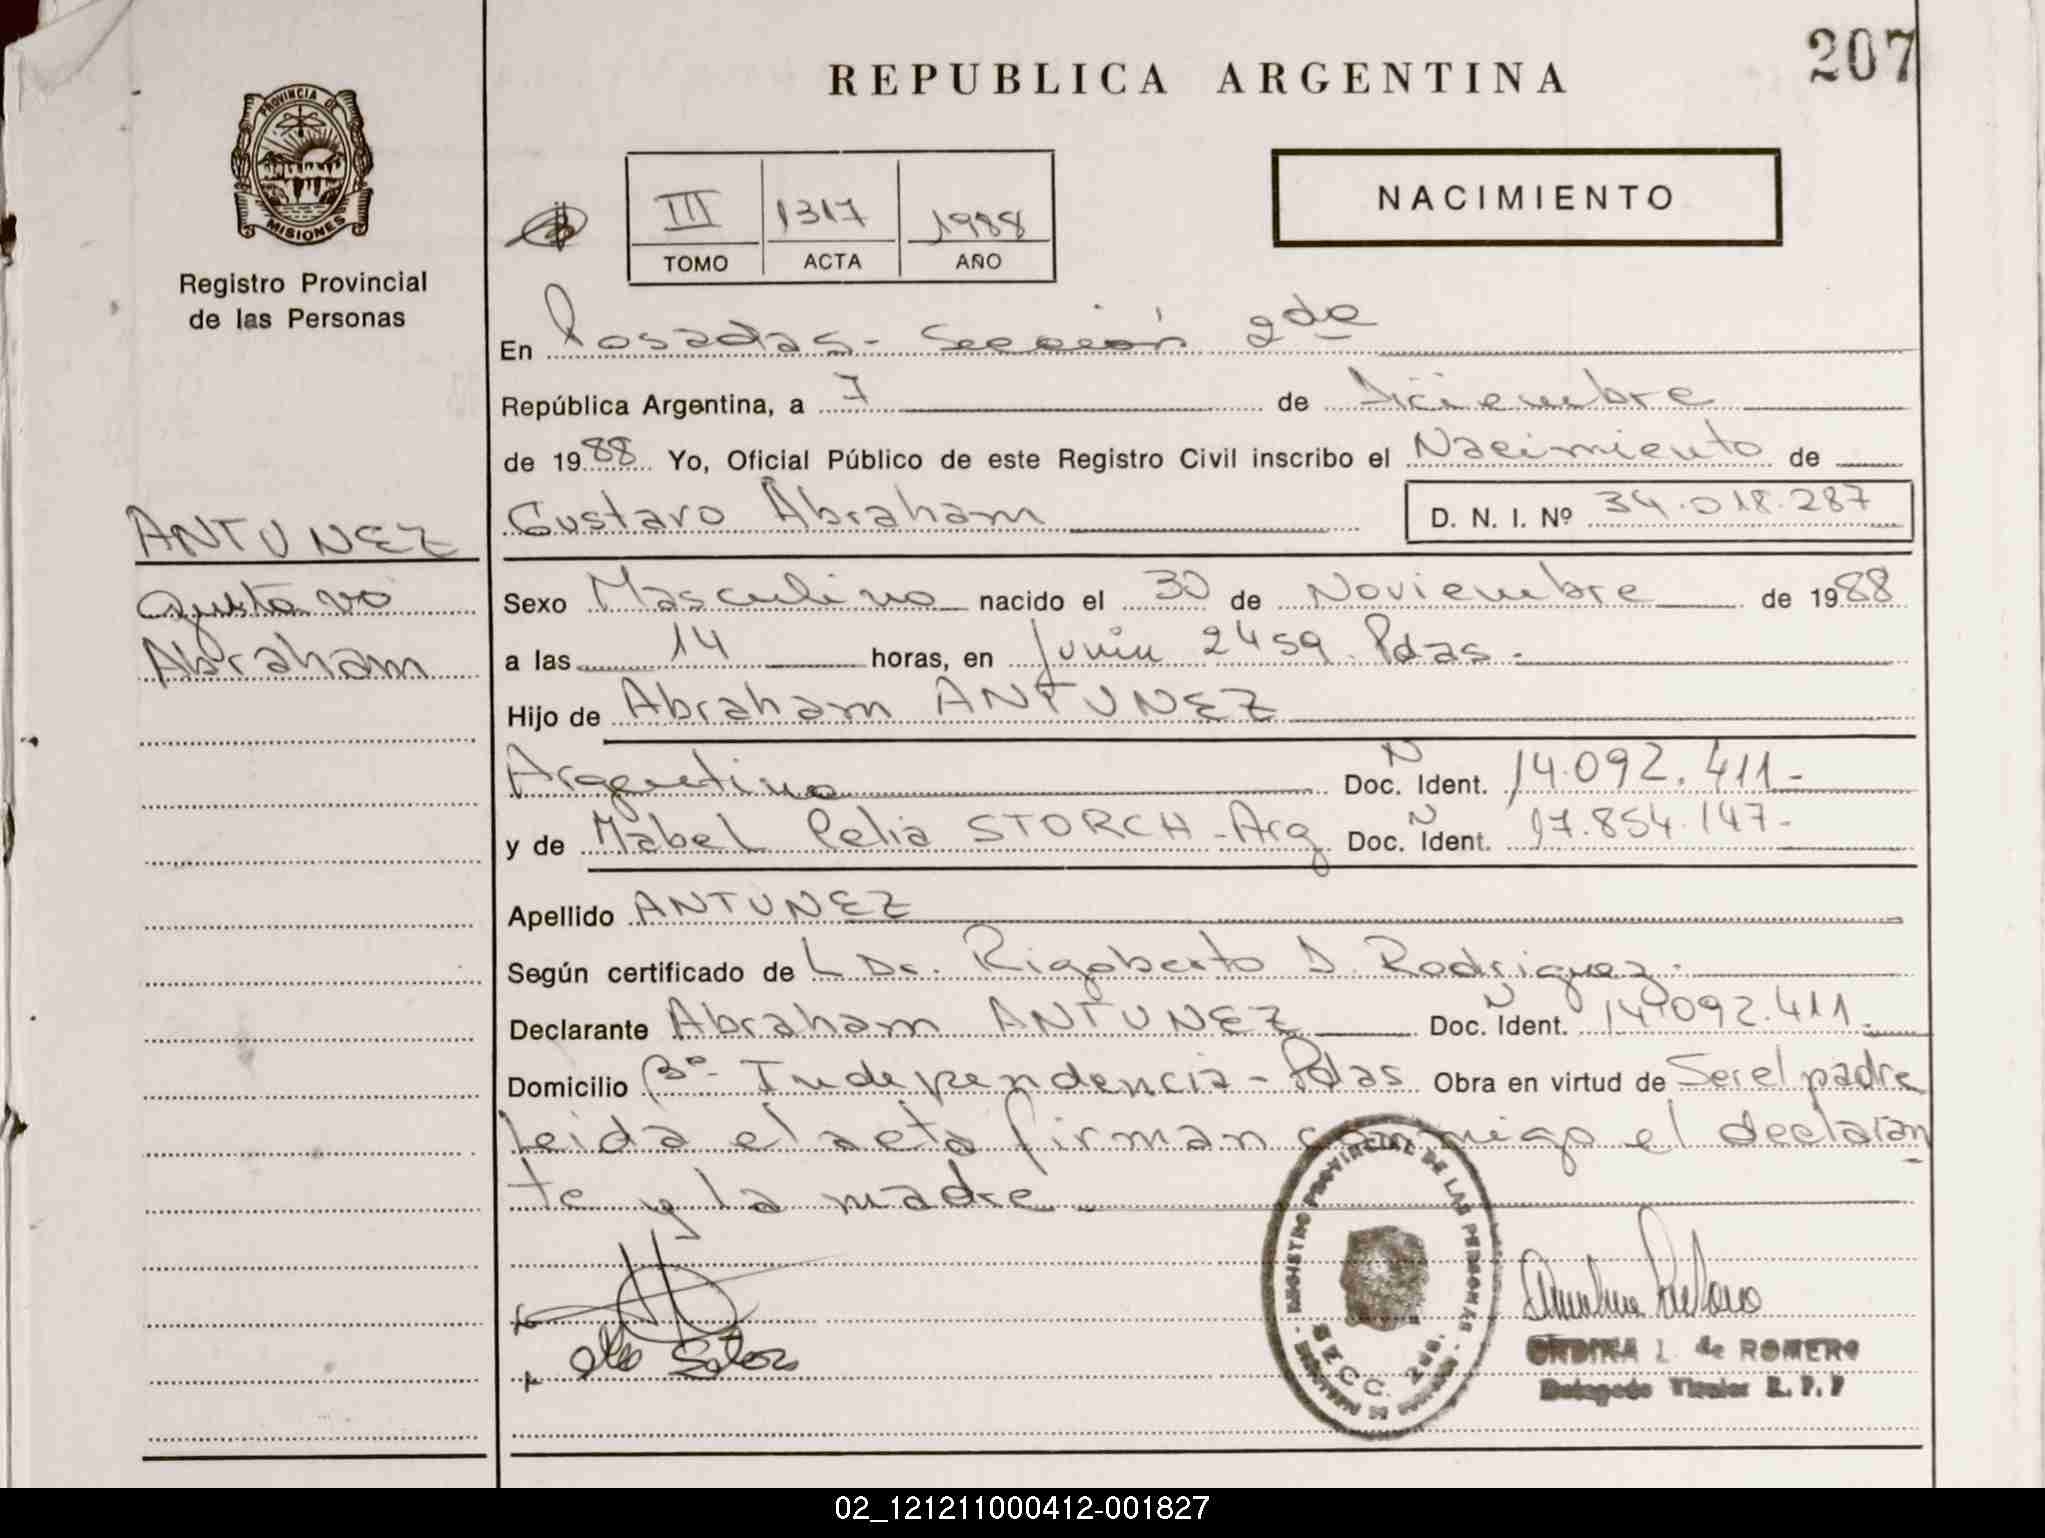 207
REPUBLICA ARGENTINA
PROVINCIA DE
MISIONES
Registro Provincial
de las Personas
III 1317 1988
TOMO ACTA AÑO
NACIMIENTO
En Posadas - Sección 2da
República Argentina, a 7 de Diciembre
de 1988 Yo, Oficial Público de este Registro Civil inscribo el Nacimiento de
Gustavo Abraham D. N. I. Nº 34.018.287
ANTUNEZ
Gustavo
Abraham
Sexo Masculino nacido el 30 de Noviembre de 1988
a las 14 horas, en Junin 2459. Pdas.
Hijo de Abraham ANTUNEZ
Argentino Doc. N Ident. 14.092.411-
y de Mabel Celia STORCH - Arg Doc. N Ident. 17.854.147-
Apellido ANTUNEZ
Según certificado de L Dr. Rigoberto D. Rodriguez.
Declarante Abraham ANTUNEZ Doc. N Ident. 14.092.411.
Domicilio Bº- Independencia - Pdas Obra en virtud de Ser el padre
Leida el acta firman conmigo el declaran
te y la madre.-
REGISTRO PROVINCIAL DE LAS PERSONAS
SECC. 2da.
L. de ROMERO
Delegado Titular R. P. P
02_121211000412-001827